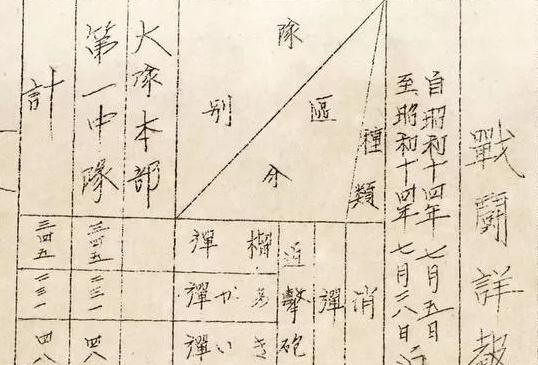 戰鬪詳報
自昭和十四年七月五日
至昭和十四年七月二八日
種類
區分
隊別
消
彈
近擊砲
榴彈
彈
彈
大隊本部
第一中隊
三四五
二三一
四八
計
三四五
二三一
四八